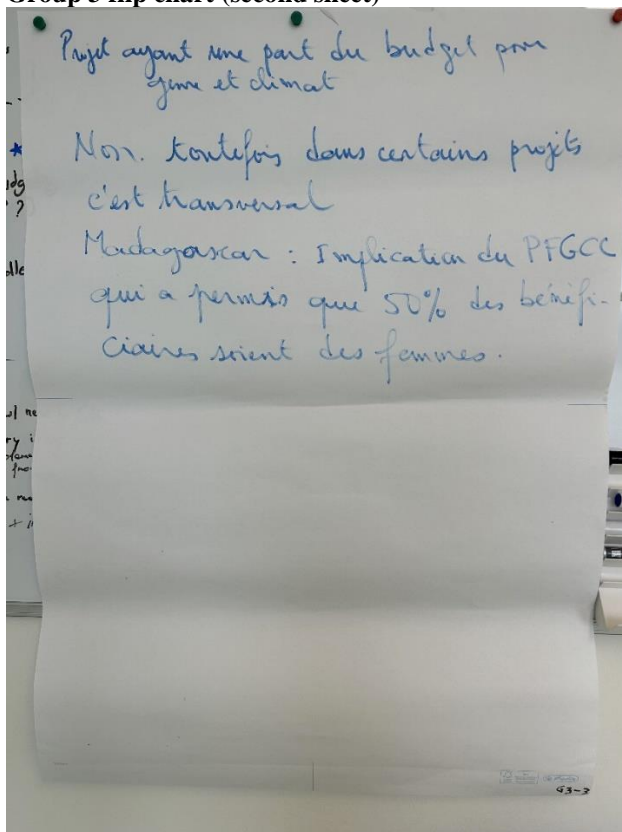 Group 3 flip chart (second sheet)
Projet ayant une part du budget pour
genre et climat
Non. toutefois dans certains projets
c'est transversal
Madagascar : Implication du PFGCC
qui a permis que 50% des bénéfi-
ciaires soient des femmes.
G3-3